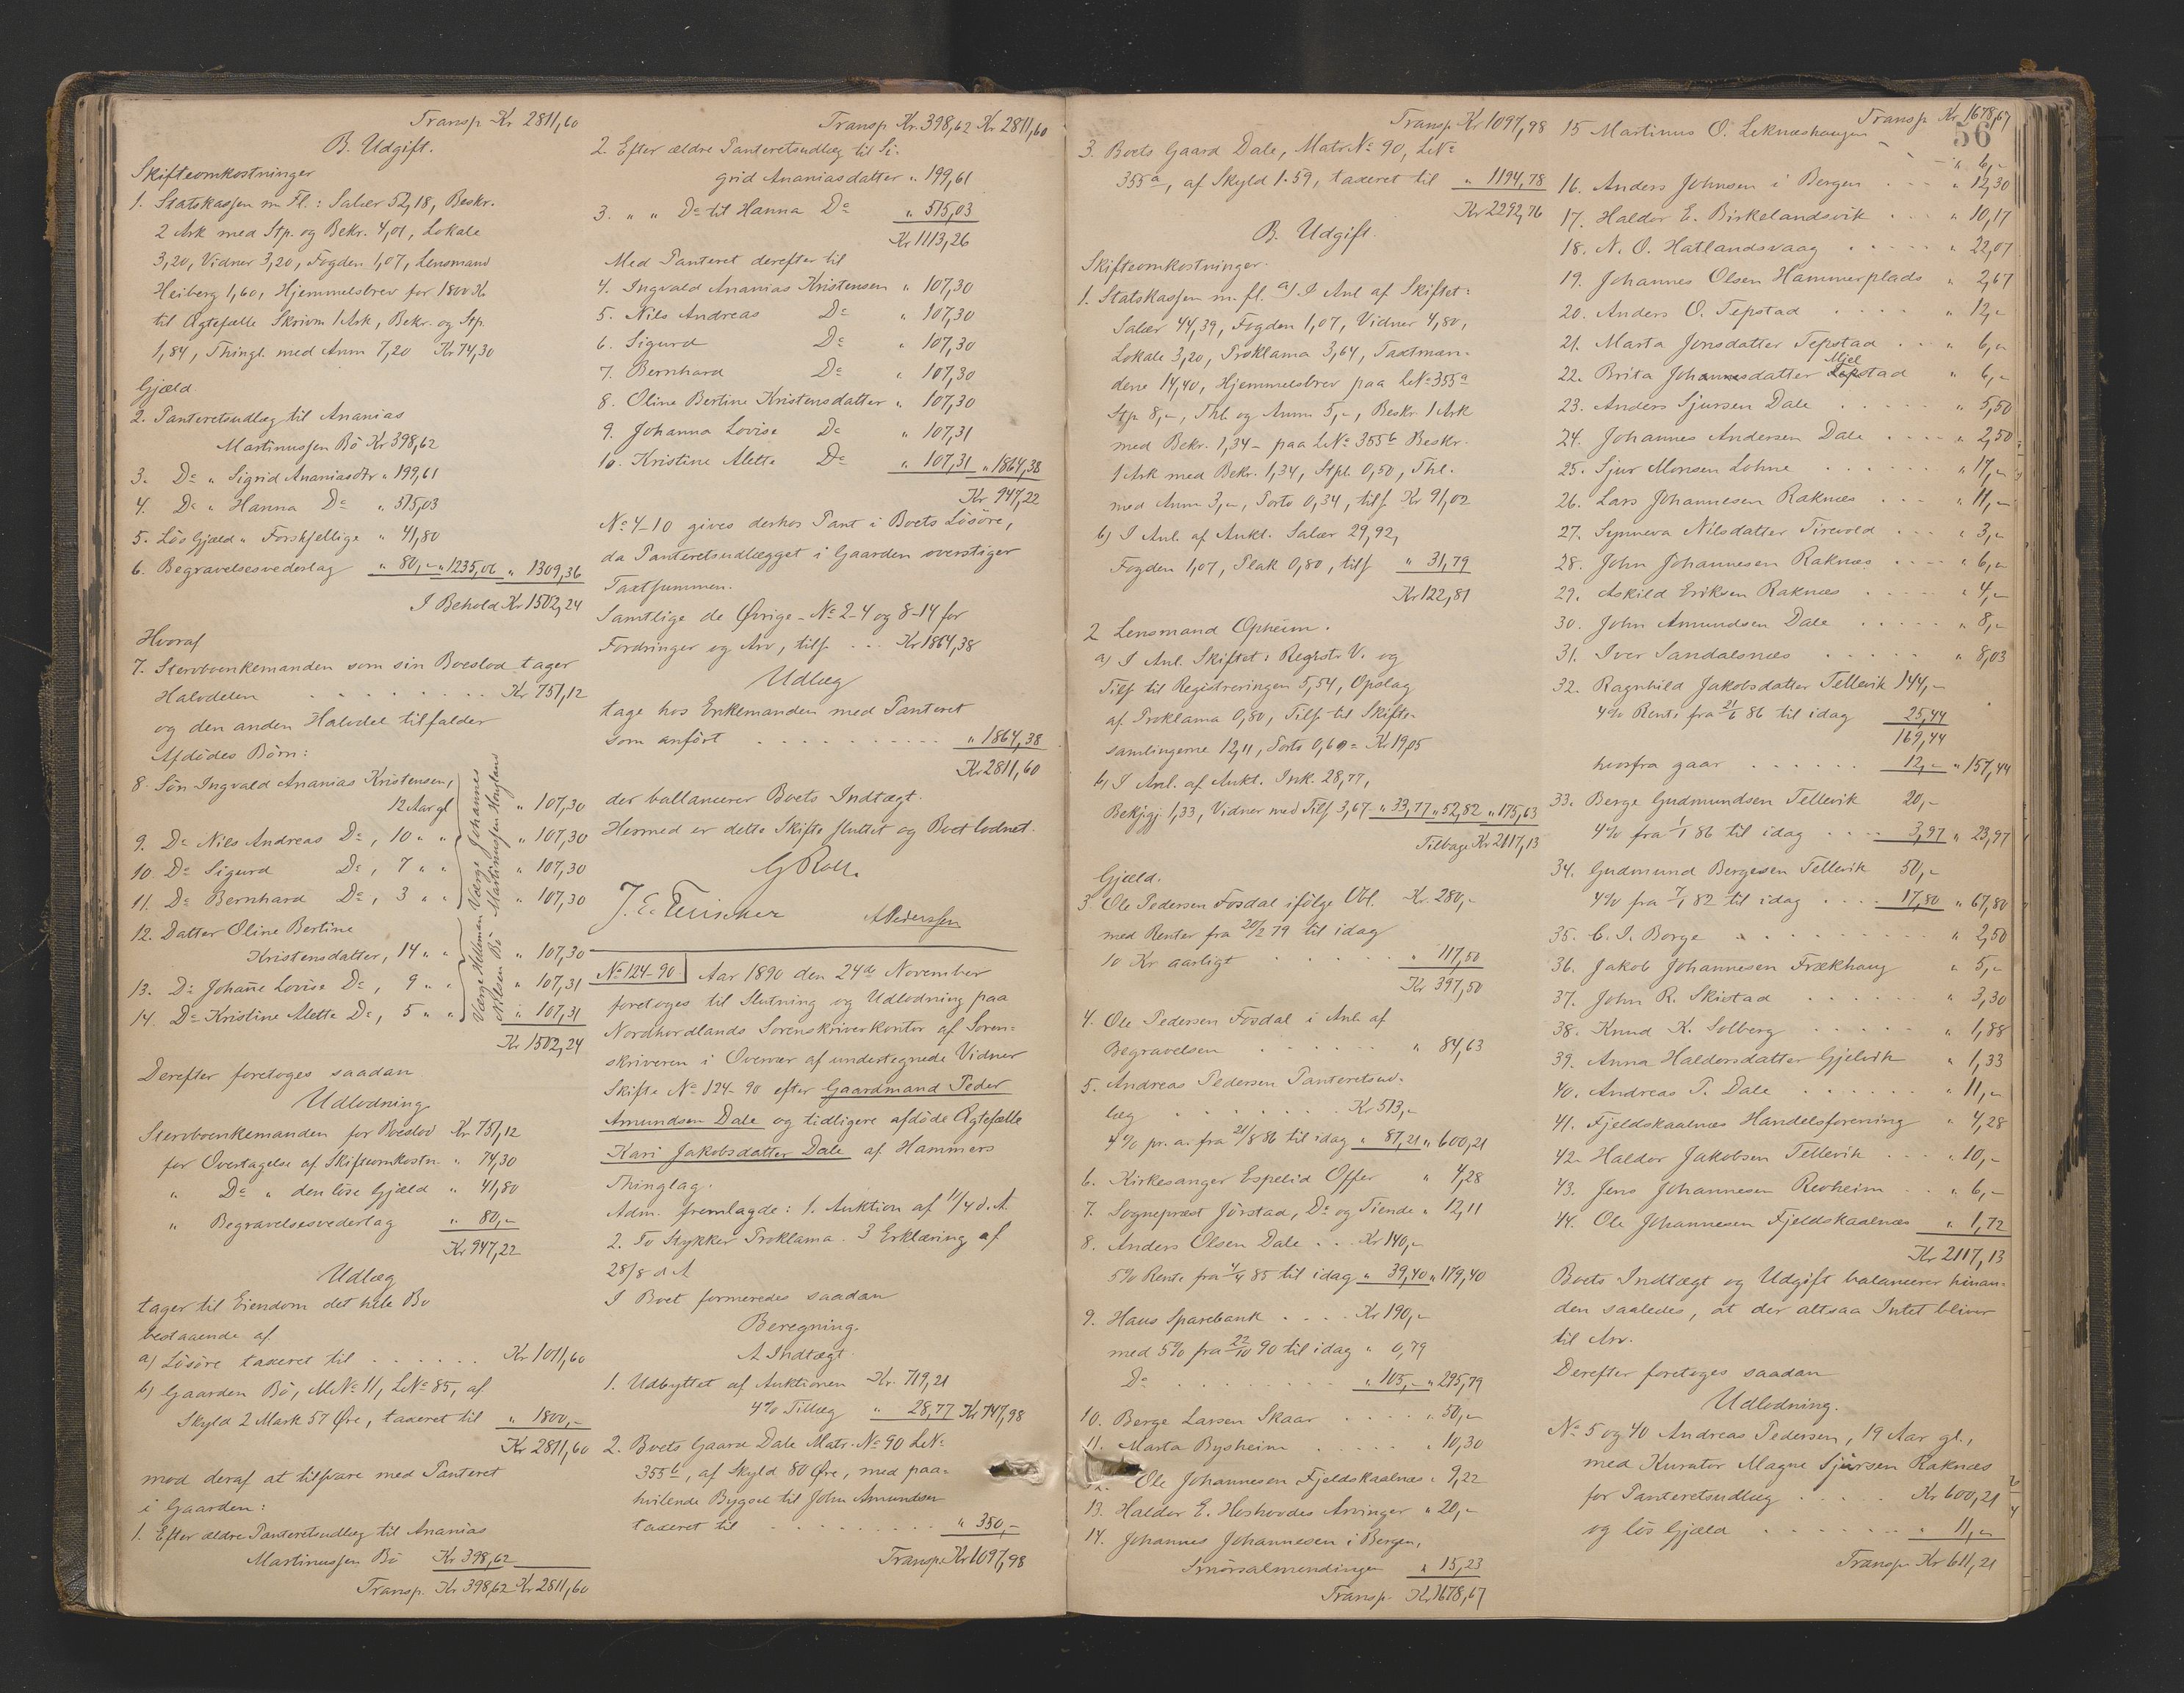 Transp Kr 2811,60
B. Udgift.
Skifteomkostninger
1. Statskassen m Fl.: Salær 52,18, Beskr.
2 Ark med Stp. og Bekr. 4,01, Lokale
3,20, Vidner 3,20, Fogden 1,07, Lensmand
Heiberg 1,60, Hjemmelsbrev for 1800 Kr
til Ægtefælle Skrivm 1 Ark, Bekr. og Stp.
1,84, Thingl. med Anm 7,20 Kr 74,30
Gjæld
2. Panteretsudlæg til Ananias
Martinussen Bö Kr 398,62
3. Do " Sigrid Ananiasdtr " 199,61
4. Do " Hanna Do " 515,03
5. Lös Gjæld " Forskjellige " 41,80
6. Begravelsesvederlag " 80,- " 1235,06 " 1309,36
I Behold Kr 1502,24
Hvoraf
7. Stervboenkemanden som sin Boeslod tager
Halvdelen . . . . . . . . Kr 751,12
og den anden Halvdel tilfalder
Afdödes Börn:
8. Sön Ingvald Ananias Kristensen,
12 Aar gl " 107,30
9. Do Nils Andreas Do, 10 " " " 107,30
10. Do Sigurd Do, 7 " " " 107,30
11. Do Bernhard Do, 3 " " " 107,30
Værge Johannes
Martinussen Haugland
12. Datter Oline Bertine
Kristensdatter, 14 " " " 107,30
13. Do Johañe Lovise Do, 9 " " " 107,31
14. Do Kristine Alette Do, 5 " " " 107,31
Værge Helleman
Nilsen Bö
Kr 1502,24
Derefter foretoges saadan
Udlodning
Stervboenkemanden for Boeslod Kr 751,12
for Overtagelse af Skifteomkostn. " 74,30
" Do " den löse Gjæld " 41,80
" Begravelsesvederlag " 80,-
Kr 947,22
Udlæg
tager til Eiendom det hele Bo
bestaaende af
a) Lösöre taxeret til . . . . . . Kr 1011,60
b) Gaarden Bö, MNo 11, LNo 85, af
Skyld 2 Mark 57 Øre, taxeret til " 1800,-
Kr 2811,60
mod deraf at tilsvare med Panteret
i Gaarden:
1. Efter ældre Panteretsudlæg til Ananias
Martinussen Bö Kr 398,62
Transp. Kr 398,62 Kr 2811,60
Transp Kr. 398,62 Kr 2811,60
2. Efter ældre Panteretsudlæg til Si-
grid Ananiasdatter " 199,61
3. " " Do til Hanna Do " 515,03
Kr 1113,26
Med Panteret derefter til
4. Ingvald Ananias Kristensen " 107,30
5. Nils Andreas Do " 107,30
6. Sigurd Do " 107,30
7. Bernhard Do " 107,30
8. Oline Bertine Kristensdatter " 107,30
9. Johanna Lovise Do " 107,31
10. Kristine Alette Do " 107,31 " 1864,38
Kr 947,22
No 4-10 gives derhos Pant i Boets Lösöre,
da Panteretsudlægget i Gaarden overstiger
Taxtsummen.
Samtlige de Øvrige - No 2-4 og 8-14 for
Fordringer og Arv, tils. . . . Kr 1864,38
Udlæg
tage hos Enkemanden med Panteret
som anfört . . . . . . . . . . " 1864,38
Kr 2811,60
der ballancerer Boets Indtægt.
Hermed er dette Skifte sluttet og Boet lodnet.
G Roll.
J. E. Teuscher APedersen
No 124-90 Aar 1890 den 24de November
foretoges til Slutning og Udlodning paa
Nordhordlands Sorenskriverkontor af Soren-
skriveren i Overvær af undertegnede Vidner
Skifte No 124-90 efter Gaardmand Peder
Amundsen Dale og tidligere afdöde Ægtefælle
Kari Jakobsdatter Dale af Hammers
Thinglag.
Adm. fremlagde: 1. Auktion af 11/4 d. A.
2. To Stykker Proklama. 3 Erklæring af
28/8 d A
I Boet formeredes saadan
Beregning.
A Indtægt.
1. Udbyttet af Auktionen Kr. 719,21
4% Tillæg " 28,77 Kr 747,98
2. Boets Gaard Dale Matr. No 90 LNo
355b, af Skyld 80 Øre, med paa-
hvilende Bygsel til John Amundsen
taxeret til . . . . . . . . . " 350,-
Transp. Kr 1097,98
Transp Kr 1097,98
3. Boets Gaard Dale, Matr. No 90, LNo
355a, af Skyld 1.59, taxeret til " 1194,78
Kr 2292,76
B. Udgift.
Skifteomkostninger.
1. Statskassen m. fl. a) I Anl af Skiftet:
Salær 44,39, Fogden 1,07, Vidner 4,80,
Lokale 3,20, Proklama 3,64, Taxtmæn-
dene 14,40, Hjemmelsbrev paa LNo 355a
Stp 8,-, Thl. og Anm 5,-, Beskr. 1 Ark
med Bekr. 1,34 - paa LNo 355b Beskr.
1 Ark med Bekr. 1,34, Stpl. 0,50, Thl.
med Anm 3,-, Porto 0,34, tils. Kr 91,02
b) I Anl. af Aukt. Salær 29,92,
Fogden 1,07, Plak 0,80, tils. " 31,79
Kr 122,81
2 Lensmand Opheim.
a) I Anl. Skiftet: Registr. V. og
Tils. til Registreringen 5,54, Opslag
af Proklama 0,80, Tils. til Skifte-
samlingerne 12,11, Porto 0,60 = Kr 19,05
b) I Anl. af Aukt. Ink. 28,77,
Bekjgj. 1,33, Vidner med Tils 3,67 " 33,77 " 52,82 " 175,63
Tilbage Kr 2117,13
Gjæld.
3 Ole Pedersen Fosdal ifölge Obl. Kr. 280,-
med Renter fra 20/2 79 til idag
10 Kr aarligt . . . . . . " 117,50
Kr 397,50
4. Ole Pedersen Fosdal i Anl. af
Begravelsen . . . . . . " 84,63
5. Andreas Pedersen Panteretsud-
læg . . . . . . . Kr 513,-
4% pr. a. fra 21/8 86 til idag " 87,21 " 600,21
6. Kirkesanger Espelid Offer " 4,28
7. Sognepræst Jörstad, Do og Tiende " 12,11
8. Anders Olsen Dale . . . Kr 140,-
5% Rente fra 4/4 85 til idag " 39,40 " 179,40
9. Haus Sparebank . . . . Kr 190,-
med 5% fra 22/10 90 til idag " 0,79
Do . . . . . . . . " 105,- " 295,79
10. Berge Larsen Skaar . . . . " 50,-
11. Marta Bysheim . . . . " 10,30
Ole Johannesen Fjeldskaalnæs " 9,22
13. Haldor E. Hoshovdes Arvinger " 20,-
14. Johannes Johannesen i Bergen,
Smörsalmendingen " 15,23
Transp. Kr 1678,67
Transp Kr. 1678,67
56
15 Martinus O. Leknæshaugen
" 6,-
16. Anders Johnsen i Bergen . . . " 12,30
17. Haldor E. Birkelandsvik . . . " 10,17
18. N. O. Hatlandsvaag . . . . . " 22,07
19. Johannes Olsen Hammerplads " 2,67
20. Anders O. Tepstad . . . . " 12,-
21. Marta Jonsdatter Tepstad . . " 6,-
22. Brita Johannesdatter Mjelstad " 6,-
23. Anders Sjursen Dale . . . . " 5,50
24. Johannes Andersen Dale . . . . " 2,50
25. Sjur Monsen Lohne . . . . . . " 17,-
26. Lars Johannesen Raknæs . . . " 11,-
27. Synneva Nilsdatter Tirevold . . . " 3,-
28. John Johannesen Raknæs . . . . " 6,-
29. Askild Eriksen Raknæs . . . . " 4,-
30. John Amundsen Dale . . . . . " 8,-
31. Iver Sandalsnæs . . . . . " 8,03
32. Ragnhild Jakobsdatter Tellevik 144,-
4% Rente fra 21/6 86 til idag 25,44
169,44
hvorfra gaar . . . . . . 12,- " 157,44
33. Berge Gudmundsen Tellevik 20,-
4% fra 1/1 86 til idag . . . . 3,97 " 23,97
34. Gudmund Bergesen Tellevik 50,-
4% fra 7/1 82 til idag . . . . 17,80 " 67,80
35. C. I. Borge . . . . . . . . . " 2,50
36. Jakob Johannesen Frækhaug " 5,-
37. John R. Skistad . . . . . . " 3,30
38. Knud K. Solberg . . . . . " 1,88
39. Anna Haldorsdatter Gjelvik " 1,33
40. Andreas P. Dale . . . . . . " 11,-
41. Fjeldskaalnæs Handelsforening " 4,28
42. Haldor Jakobsen Tellevik . . . " 10,-
43. Jens Johannesen Revheim . . " 6,-
44. Ole Johannesen Fjeldskaalnæs " 1,72
Kr 2117,13
Boets Indtægt og Udgift balancerer hinan-
den saaledes, at der altsaa Intet bliver
til Arv.
Derefter foretoges saadan
Udlodning.
No 5 og 40 Andreas Pedersen, 19 Aar gl.,
med Kurator Magne Sjursen Raknæs
for Panteretsudlæg . . . . Kr 600,21
og lös Gjæld . . . . . . . " 11,-
Transp. Kr 611,21